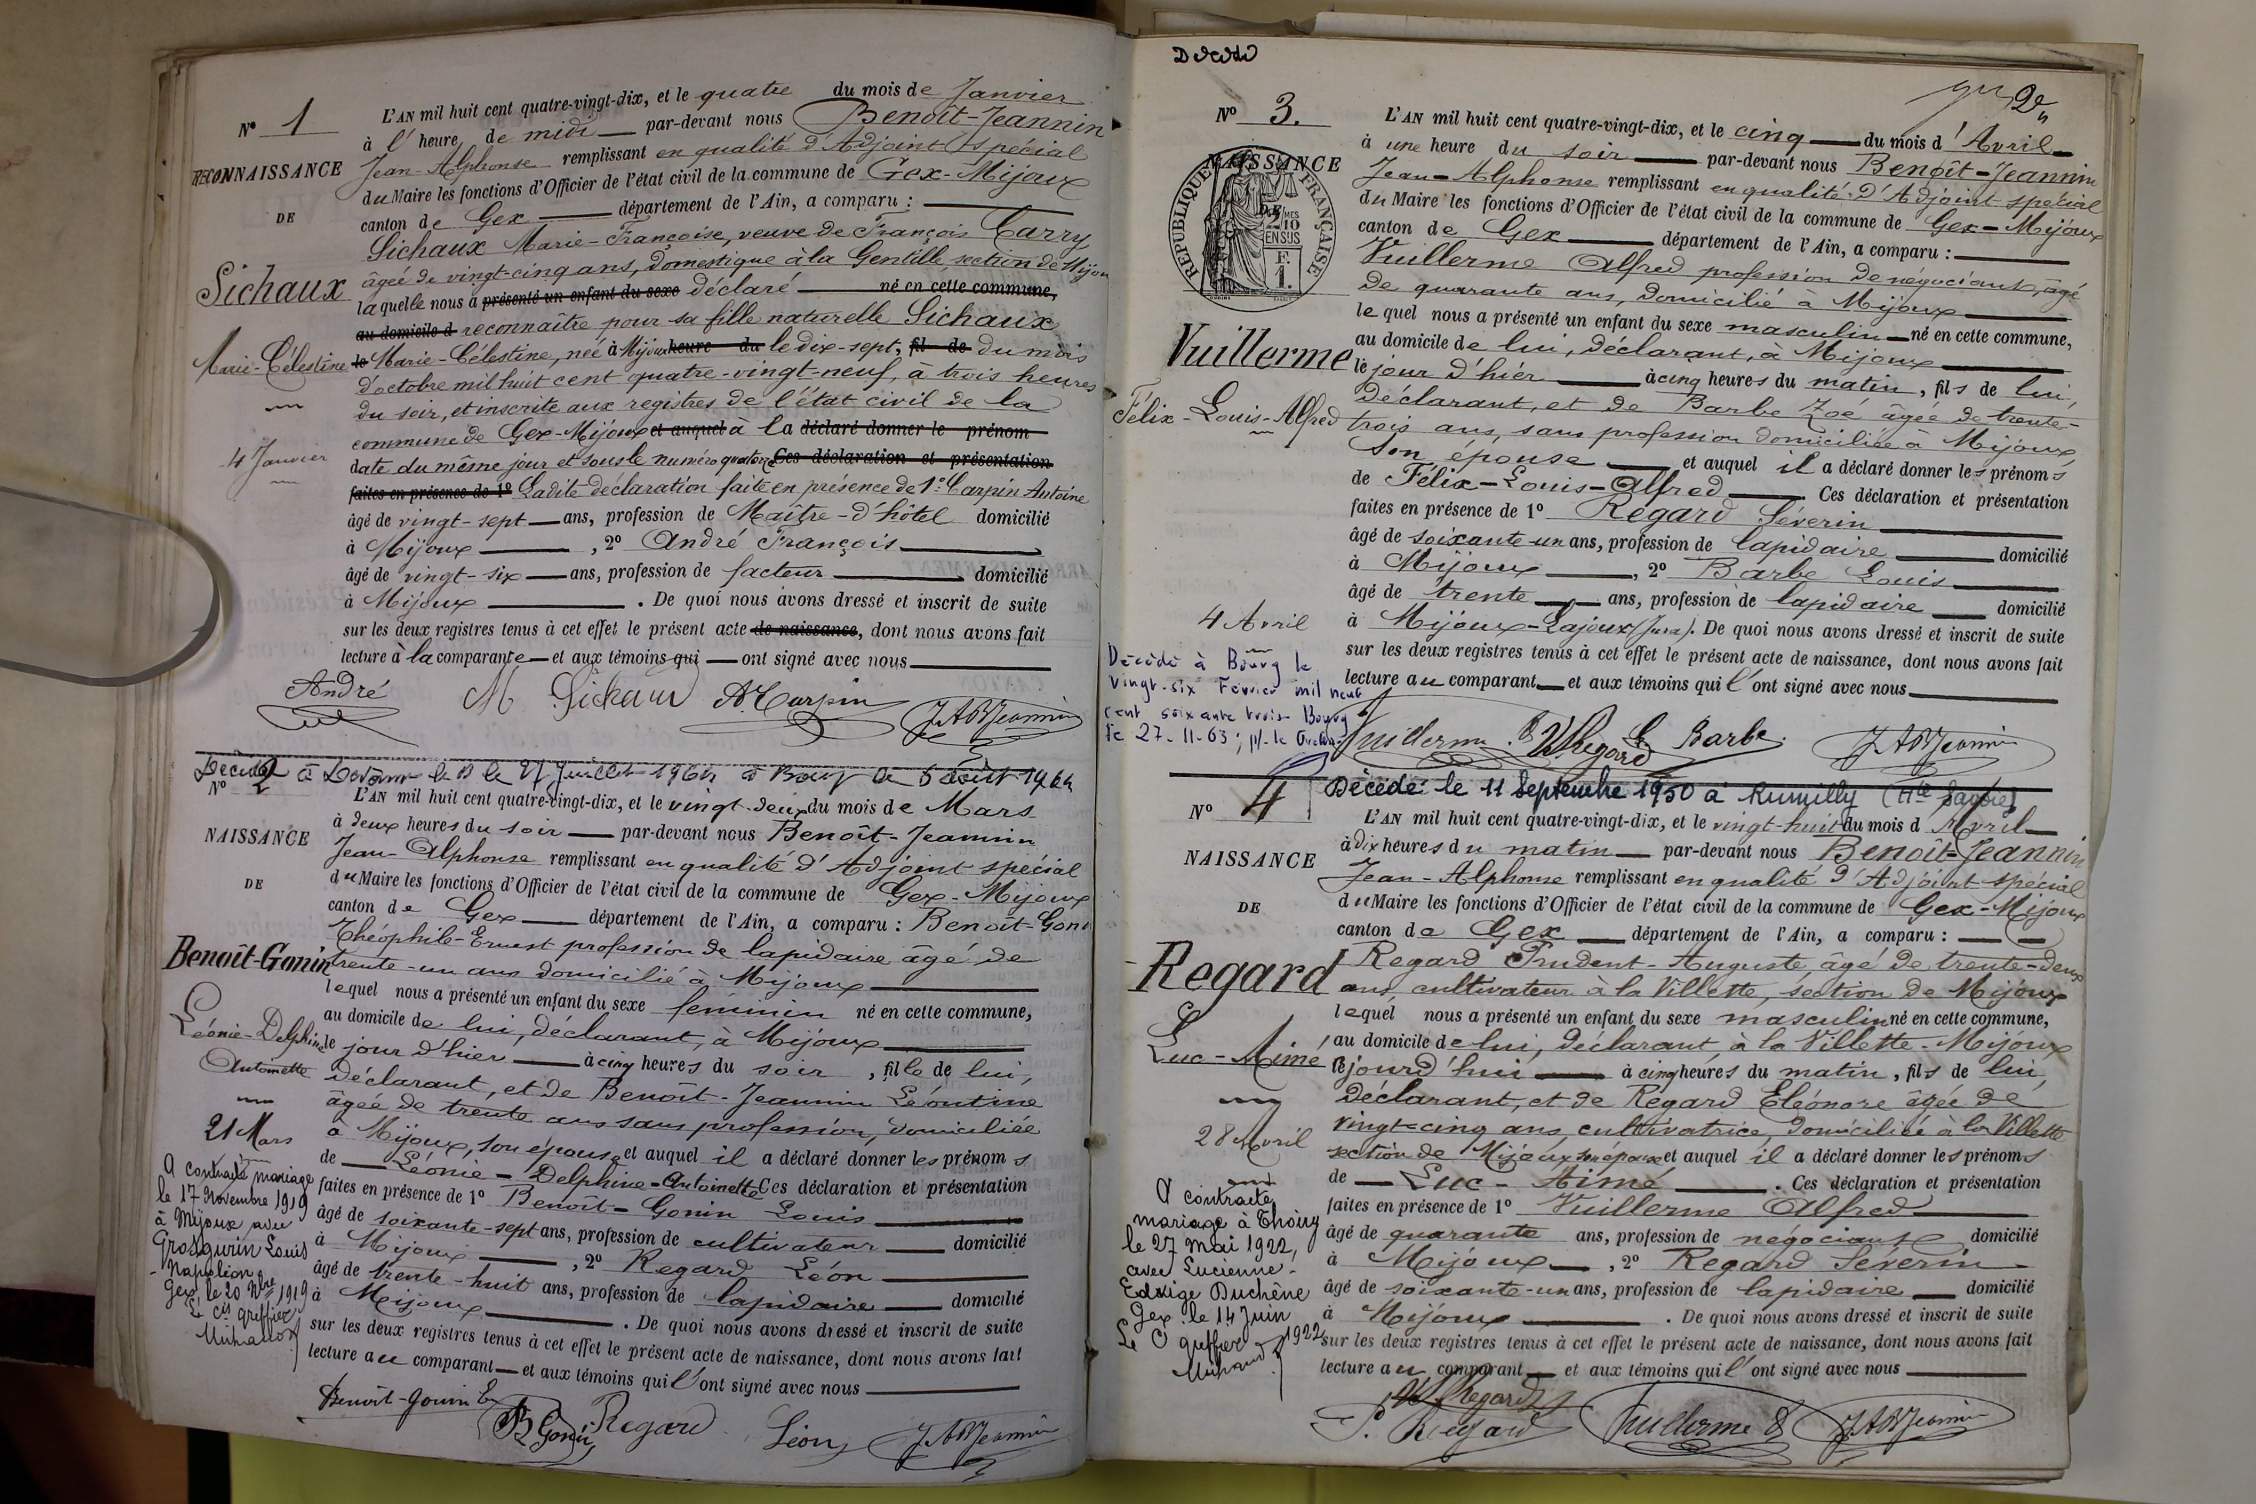 N° 1
RECONNAISSANCE
DE
Sichaux
Marie-Célestine
4 Janvier
L'AN mil huit cent quatre-vingt-dix, et le quatre du mois de Janvier
à l'heure de midi par-devant nous Benoît-Jeannin
Jean-Alphonse remplissant en qualité d'Adjoint spécial
du Maire les fonctions d'Officier de l'état civil de la commune de Gex-Mijoux
canton de Gex département de l'Ain, a comparu :
Sichaux Marie-Françoise, veuve de François Carry
âgée de vingt-cinq ans, domestique à la Gentille, section de Mijoux
laquelle nous a présenté un enfant du sexe déclaré né en cette commune,
au domicile d reconnaître pour sa fille naturelle Sichaux
le Marie-Célestine, née à Mijoux heure du le dix-sept, fil de du mois
d'octobre mil huit cent quatre-vingt-neuf, à trois heures
du soir, et inscrite aux registres de l'état civil de la
commune de Gex-Mijoux et auquel à la déclaré donner le prénom
date du même jour et sous le numéro quatorze Ces déclaration et présentation
faites en présence de 1° Ladite déclaration faite en présence de 1° Carpin Antoine
âgé de vingt-sept ans, profession de Maître-d'hôtel domicilié
à Mijoux , 2° André François
âgé de vingt-six ans, profession de facteur domicilié
à Mijoux . De quoi nous avons dressé et inscrit de suite
sur les deux registres tenus à cet effet le présent acte de naissance, dont nous avons fait
lecture à la comparante et aux témoins qui ont signé avec nous
André M Sichaux A Carpin J A B Jeannin
Décédée à le 27 Juillet 1964 à Bourg le 5 août 1964
N° 2
NAISSANCE
DE
Benoît-Gonin
Léonie-Delphine
Antoinette
21 Mars
A contracté mariage
le 17 Novembre 1919
à Mijoux avec
Grosgurin Louis
-Napoléon
Gex, le 20 Nbre 1919
Le cis greffier
L'AN mil huit cent quatre-vingt-dix, et le vingt-deux du mois de Mars
à deux heures du soir par-devant nous Benoît-Jeannin
Jean-Alphonse remplissant en qualité d'Adjoint spécial
du Maire les fonctions d'Officier de l'état civil de la commune de Gex-Mijoux
canton de Gex département de l'Ain, a comparu : Benoît-Gonin
Théophile-Ernest profession de lapidaire âgé de
trente-un ans domicilié à Mijoux
lequel nous a présenté un enfant du sexe féminin né en cette commune,
au domicile de lui, déclarant, à Mijoux
le jour d'hier à cinq heures du soir , fille de lui,
déclarant, et de Benoît-Jeannin Léontine
âgée de trente ans sans profession, domiciliée
à Mijoux, son épouse et auquel il a déclaré donner les prénoms
de Léonie-Delphine-Antoinette Ces déclaration et présentation
faites en présence de 1° Benoît-Gonin Louis
âgé de soixante-sept ans, profession de cultivateur domicilié
à Mijoux , 2° Regard Léon
âgé de trente-huit ans, profession de lapidaire domicilié
à Mijoux . De quoi nous avons dressé et inscrit de suite
sur les deux registres tenus à cet effet le présent acte de naissance, dont nous avons fait
lecture au comparant et aux témoins qui l'ont signé avec nous
Benoît-Gonin E B Gonin Regard Léon J A B Jeannin
2e
N° 3.
NAISSANCE
RÉPUBLIQUE FRANÇAISE
2/10 EN SUS
F. 1.
Vuillerme
Félix-Louis-Alfred
4 Avril
Décédé à Bourg le
vingt-six Février mil neuf
cent soixante trois Bourg
le 27-11-63;
L'AN mil huit cent quatre-vingt-dix, et le cinq du mois d'Avril
à une heure du soir par-devant nous Benoît-Jeannin
Jean-Alphonse remplissant en qualité d'Adjoint spécial
du Maire les fonctions d'Officier de l'état civil de la commune de Gex-Mijoux
canton de Gex département de l'Ain, a comparu :
Vuillerme Alfred profession de négociant, âgé
de quarante ans, domicilié à Mijoux
lequel nous a présenté un enfant du sexe masculin né en cette commune,
au domicile de lui, déclarant, à Mijoux
le jour d'hier à cinq heures du matin, fils de lui,
déclarant, et de Barbe Zoé âgée de trente-
trois ans, sans profession domiciliée à Mijoux
son épouse et auquel il a déclaré donner les prénoms
de Félix-Louis-Alfred . Ces déclaration et présentation
faites en présence de 1° Regard Séverin
âgé de soixante-un ans, profession de lapidaire domicilié
à Mijoux , 2° Barbe Louis
âgé de trente ans, profession de lapidaire domicilié
à Mijoux-Lajoux (Jura). De quoi nous avons dressé et inscrit de suite
sur les deux registres tenus à cet effet le présent acte de naissance, dont nous avons fait
lecture au comparant et aux témoins qui l'ont signé avec nous
Vuillerme Regard L Barbe J A B Jeannin
Décédé le 11 Septembre 1950 à Rumilly (Hte Savoie)
N° 4
NAISSANCE
DE
Regard
Luc-Aimé
28 Avril
A contracté
mariage à Thoiry
le 27 mai 1922,
avec Lucienne-
Edvige Duchêne
Gex le 14 Juin
1922
Le C greffier
L'AN mil huit cent quatre-vingt-dix, et le vingt-huit du mois d'Avril
à dix heures du matin par-devant nous Benoît-Jeannin
Jean-Alphonse remplissant en qualité d'Adjoint spécial
du Maire les fonctions d'Officier de l'état civil de la commune de Gex-Mijoux
canton de Gex département de l'Ain, a comparu :
Regard Prudent-Auguste, âgé de trente-deux
ans, cultivateur à la Villette, section de Mijoux
lequel nous a présenté un enfant du sexe masculin né en cette commune,
au domicile de lui, déclarant, à la Villette-Mijoux
cejourd'hui à cinq heures du matin, fils de lui,
déclarant, et de Regard Eléonore âgée de
vingt-cinq ans, cultivatrice, domiciliée à la Villette
section de Mijoux son épouse et auquel il a déclaré donner les prénoms
de Luc-Aimé . Ces déclaration et présentation
faites en présence de 1° Vuillerme Alfred
âgé de quarante ans, profession de négociant domicilié
à Mijoux , 2° Regard Séverin
âgé de soixante-un ans, profession de lapidaire domicilié
à Mijoux . De quoi nous avons dressé et inscrit de suite
sur les deux registres tenus à cet effet le présent acte de naissance, dont nous avons fait
lecture au comparant et aux témoins qui l'ont signé avec nous
Regard
P. Regard Vuillerme J A B Jeannin